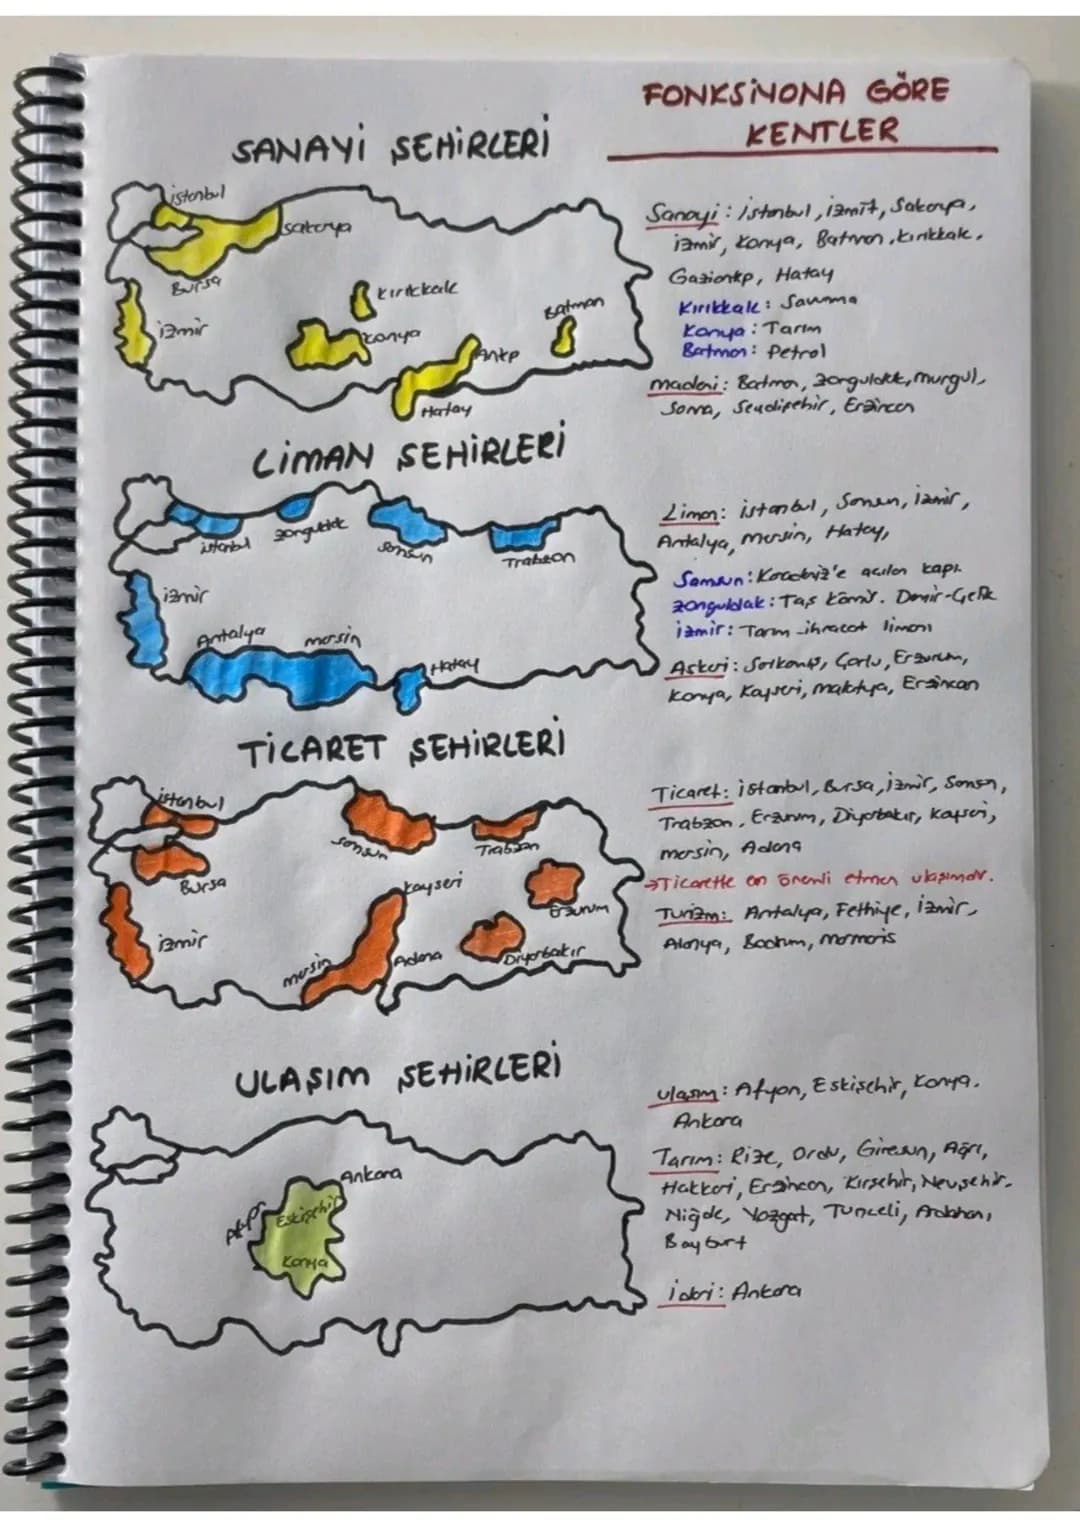 FONKSİYONA GÖRE
KENTLER
SANAYİ ŞEHİRLERİ
istanbul
sakarya
Bursa
izmir
Kırıkkale
Konya
Antep
Batman
Hatay
Sanayi: istanbul, izmit, Sakarya,
izmir, Konya, Batman, Kırıkkale,
Gaziantep, Hatay
Kırıkkale: Savunma
Konya: Tarım
Batman: Petrol
madeni: Batman, Zonguldak, murgul,
Soma, Seydişehir, Erzincan
LİMAN ŞEHİRLERİ
istanbul
Zonguldak
Samsun
Trabzon
izmir
Antalya
mersin
Hatay
Liman: istanbul, Samsun, izmir,
Antalya, mersin, Hatay,
Samsun: Karadeniz'e açılan kapı.
Zonguldak: Taş kömür. Demir-Çelik
izmir: Tarım-ihracat limanı
Askeri: Sarıkamış, Çorlu, Erzurum,
Konya, Kayseri, malatya, Erzincan
TİCARET ŞEHİRLERİ
istanbul
Bursa
izmir
Samsun
Trabzon
Kayseri
Erzurum
mersin
Adana
Diyarbakır
Ticaret: istanbul, Bursa, izmir, Samsun,
Trabzon, Erzurum, Diyarbakır, Kayseri,
mersin, Adana
→Ticarette en önemli etmen ulaşımdır.
Turizm: Antalya, Fethiye, izmir,
Alanya, Bodrum, marmaris
ULAŞIM ŞEHİRLERİ
Ankara
Afyon
Eskişehir
Konya
ulaşım: Afyon, Eskişehir, Konya.
Ankara
Tarım: Rize, Ordu, Giresun, Ağrı,
Hakkari, Erzincan, Kırşehir, Nevşehir.
Niğde, Yozgat, Tunceli, Ardahan,
Bayburt
idari: Ankara